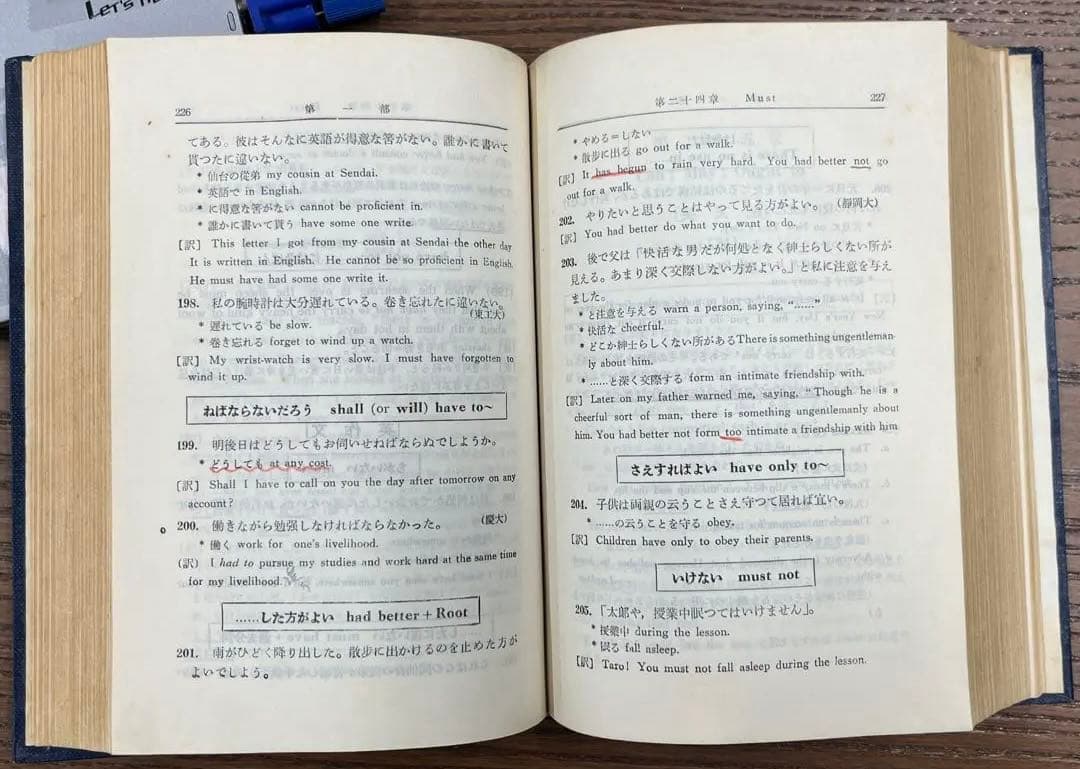 LET'S
226 第一部
てある。彼はそんなに英語が得意な筈がない。誰かに書いて
貰つたに違いない。
* 仙台の從弟 my cousin at Sendai.
* 英語で in English.
* に得意な筈がない cannot be proficient in.
* 誰かに書いて貰う have some one write.
[訳] This letter I got from my cousin at Sendai the other day
It is written in English. He cannot be so proficient in English.
He must have had some one write it.
198. 私の腕時計は大分遅れている。巻き忘れたに違いない。
(東工大)
* 遅れている be slow.
* 巻き忘れる forget to wind up a watch.
[訳] My wrist-watch is very slow. I must have forgotten to
wind it up.
ねばならないだろう shall (or will) have to~
199. 明後日はどうしてもお伺いせねばならぬでしようか。
* どうしても at any cost.
[訳] Shall I have to call on you the day after tomorrow on any
account?
200. 働きながら勉強しなければならなかった。 (慶大)
* 働く work for one's livelihood.
(訳) I had to pursue my studies and work hard at the same time
for my livelihood.
……した方がよい had better + Root
201. 雨がひどく降り出した。散歩に出かけるのを止めた方が
よいでしよう。
第二十四章 Must 227
* やめる=しない
* 散歩に出る go out for a walk.
[訳] It has begun to rain very hard. You had better not go
out for a walk.
202. やりたいと思うことはやって見る方がよい。 (靜岡大)
[訳] You had better do what you want to do.
203. 後で父は「快活な男だが何処となく紳士らしくない所が
見える。あまり深く交際しない方がよい。」と私に注意を与え
ました。
* と注意を与える warn a person, saying, "……"
* 快活な cheerful.
* どこか紳士らしくない所がある There is something ungentleman-
ly about him.
* ……と深く交際する form an intimate friendship with.
[訳] Later on my father warned me, saying, "Though he is a
cheerful sort of man, there is something ungentlemanly about
him. You had better not form too intimate a friendship with him
さえすればよい have only to~
204. 子供は両親の云うことさえ守つて居れば宜い。
* ……の云うことを守る obey.
[訳] Children have only to obey their parents.
いけない must not
205. 「太郎や, 授業中眠つてはいけません」。
* 授業中 during the lesson.
* 眠る fall asleep.
[訳] Taro! You must not fall asleep during the lesson.